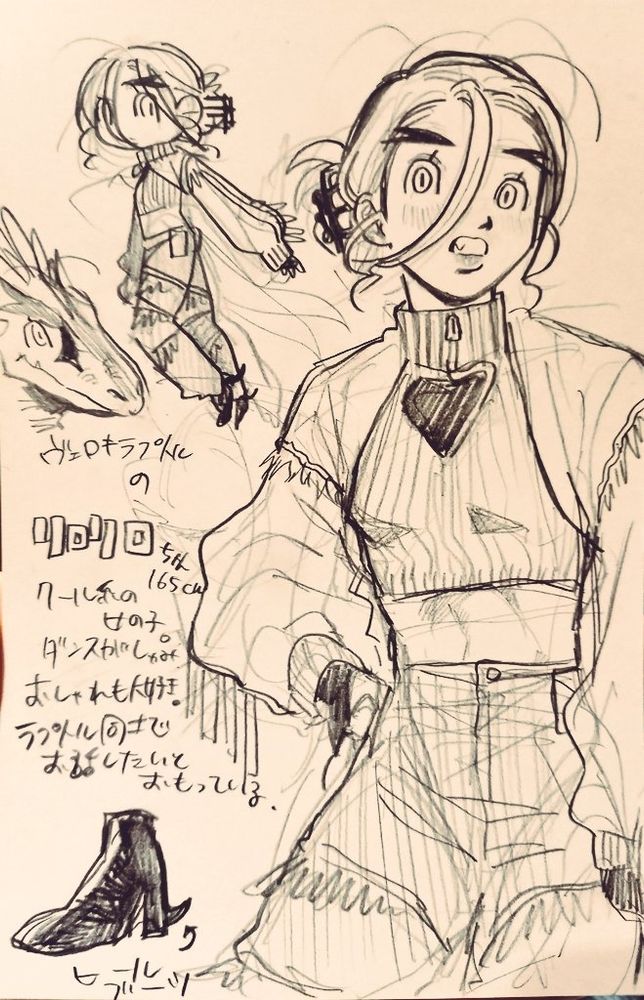 ヴェロキラプトル
の
リロリロちゃん
165cm
クール系の
女の子。
ダンスがしゅみ
おしゃれも大好き。
ラプトル同士で
お話したいと
おもっている。
ヒール
ブーツ